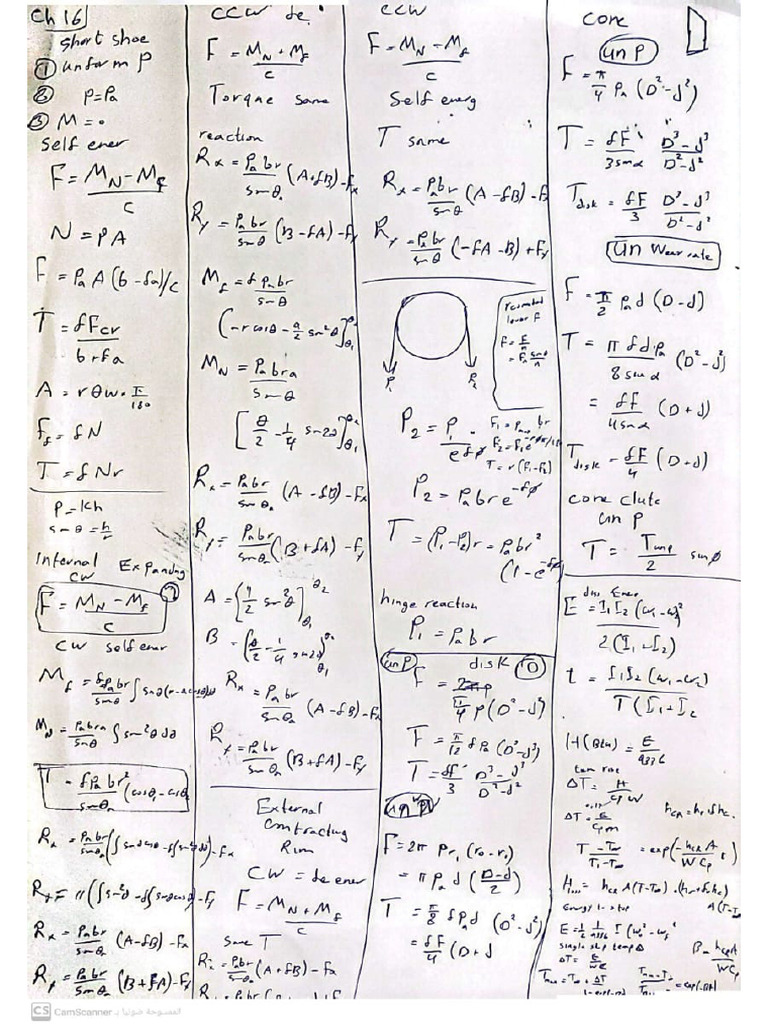 Ch 16
short shoe
① uniform p
② P=Pa
③ M = 0
self ener
F = M_N - M_f / c
N = PA
F = Pa A (b - fa)/c
T = fFcr / b - fa
A = rθw · π/180
F_f = fN
T = fNr
P = kh
Internal Expanding
CW
F = M_N - M_f / c
CW self ener
M_f = f Pa br / sinθ ∫ sinθ(r-a cosθ)dθ
M_N = Pa bra / sinθ ∫ sin²θ dθ
T = f Pa br² (cosθ₁ - cosθ₂) / sinθa
Rx = Pa br / sinθa (∫ sinθ cosθ - f∫ sin²θ dθ) - Fx
Ry = 〃 (∫ sin²θ + f∫ sinθ cosθ) - Fy
Rx = Pa br / sinθa (A - fB) - Fx
Ry = Pa br / sinθa (B + fA) - Fy
CCW de.
F = M_N + M_f / c
Torque same
reaction
Rx = Pa br / sinθ (A + fB) - Fx
Ry = Pa br / sinθ (B - fA) - Fy
M_f = f Pa br / sinθ
(-r cosθ - a/2 sin²θ]θ₂ θ₁
M_N = Pa bra / sinθ
[θ/2 - 1/4 sin 2θ]θ₂ θ₁
Rx = Pa br / sinθa (A - fB) - Fx
Ry = Pa br / sinθa (B + fA) - Fy
A = (1/2 sin²θ)θ₂ θ₁
B = (θ/2 - 1/4 sin2θ)θ₂ θ₁
Rx = Pa br / sinθa (A - fB) - Fx
Ry = Pa br / sinθa (B + fA) - Fy
External
contracting
Rim
CW = de ener
F = M_N + M_f / c
same T
Rx = Pa br / sinθ (A + fB) - Fx
CCW
F = M_N - M_f / c
Self energ
T same
Rx = Pa br / sinθ (A - fB) - Fx
Ry = Pa br / sinθ (-fA - B) + Fy
P₁
P₂
lever F
P₂ = P₁ / e^fφ
T = r(F₁ - F₂)
P₂ = Pa br e^-fφ
T = (P₁ - P₂)r = Pa br²
(1 - e^-fφ)
hinge reaction
P₁ = Pa br
un P disk 10
F = π/4 P (D² - d²)
T = π/12 f Pa (D³ - d³)
T = fF/3 D³ - d³ / D² - d²
un W
F = 2π Pr₁ (r₀ - r₁)
= π Pa d (D-d / 2)
T = π/8 f Pa d (D² - d²)
= fF/4 (D + d
cone
un P
F = π/4 Pa (D² - d²)
T = fF / 3 sinα D³ - d³ / D² - d²
T disk = fF/3 D³ - d³ / D² - d²
un wear rate
F = π/2 Pa d (D - d)
T = π f d Pa / 8 sinα (D² - d²)
= fF / 4 sinα (D + d)
T disk = fF/4 (D + d)
cone clutc
un P
E = I₁I₂ (ω₁ - ω₂)² / 2 (I₁ + I₂)
t = I₁I₂ (ω₁ - ω₂) / T (I₁ + I₂
H (Btu) = E / 9336
tem rise
ΔT = H / Cp W
ΔT = E / Cp m
T - T∞ / T₁ - T∞ = exp(-hCR A / W Cp t)
ΔT = E / WC
B = hCR A / WCp
CS CamScanner الممسوحة ضوئيا بـ